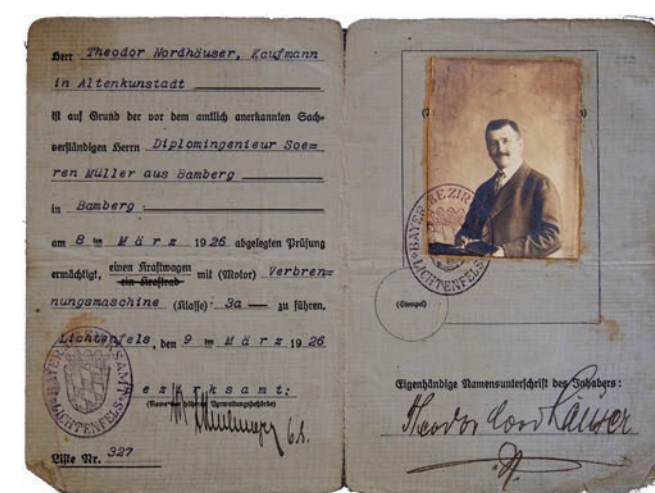 Herr Theodor Nordhäuser, Kaufmann
in Altenkunstadt
ist auf Grund der vor dem amtlich anerkannten Sach-
verständigen Herrn Diplomingenieur Soe=
ren Müller aus Bamberg
in Bamberg.
am 8 ten März 1926 abgelegten Prüfung
ermächtigt, einen Kraftwagen mit (Motor) Verbren=
ein Kraftrad
nungsmaschine (Klasse) 3a — zu führen.
Lichtenfels, den 9 ten März 1926
Bezirksamt:
(Name der höheren Verwaltungsbehörde)
BAYER. BEZIRKSAMT
LICHTENFELS
Liste Nr. 327
BAYER. BEZIR
LICHTENFELS
(Stempel)
Eigenhändige Namensunterschrift des Inhabers:
Theodor Nordhäuser